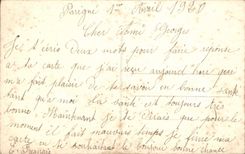 Parigné 1er Avril 1920
Cher Ami Georges
Je t'écris deux mots pour faire réponse
à ta carte que j'ai reçu aujourd'hui que
m'a fait plaisir de te savoir en bonne santé
tant qu'à moi la santé est toujours très
bonne Maintenant je te dirais que pour le
moment il fait mauvais temps je finis ma
carte en te souhaitant le bonjour bonne chance